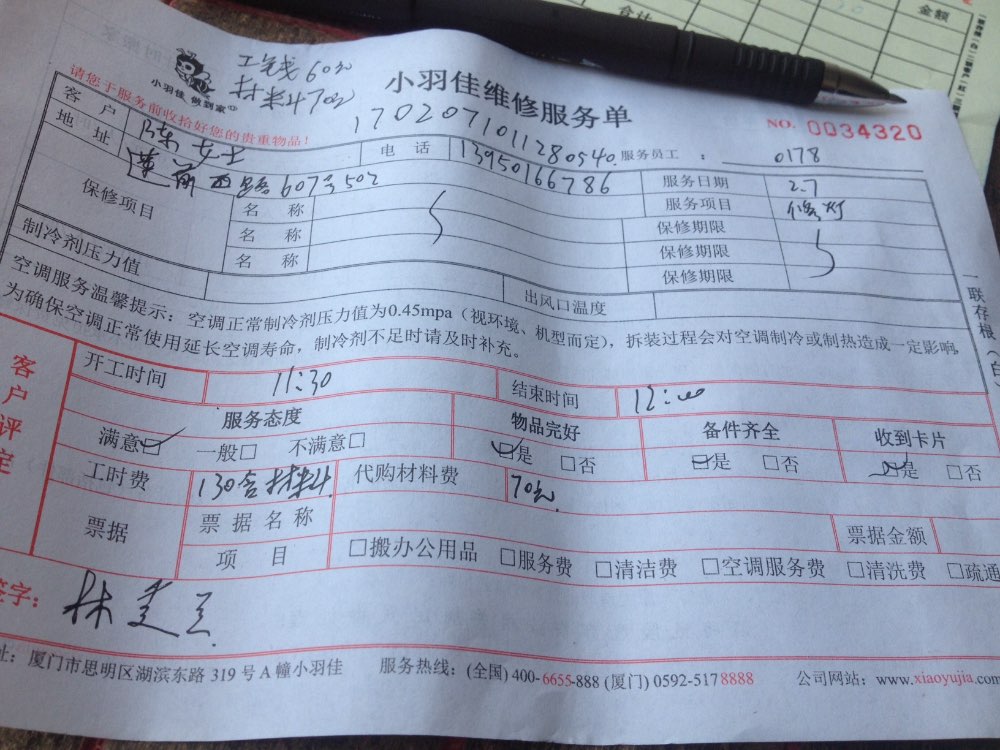 合计
金额
工钱60元
材料70元
小羽佳 做到家
小羽佳维修服务单
请您于服务前收拾好您的贵重物品！
17020710111280540
NO. 0034320
客户 陈女士 电话 13950166786 服务员工： 0178
地址 莲前西路607号502 服务日期 2.7
保修项目 名称 服务项目 修灯
名称 保修期限
名称 保修期限
保修期限
制冷剂压力值 出风口温度
空调服务温馨提示：空调正常制冷剂压力值为0.45mpa（视环境、机型而定），拆装过程会对空调制冷或制热造成一定影响，
为确保空调正常使用延长空调寿命，制冷剂不足时请及时补充。
一联存根（白
客户评定
开工时间 11:30 结束时间 12:00
服务态度 物品完好 备件齐全 收到卡片
满意☑ 一般□ 不满意□ ☑是 □否 ☑是 □否 ☑是 □否
工时费 130含材料 代购材料费 70元
票据 票据名称 票据金额
项目 □搬办公用品 □服务费 □清洁费 □空调服务费 □清洗费 □疏通
签字： 林
址：厦门市思明区湖滨东路 319 号 A 幢小羽佳 服务热线：(全国) 400-6655-888 (厦门) 0592-5178888 公司网站：www.xiaoyujia.com